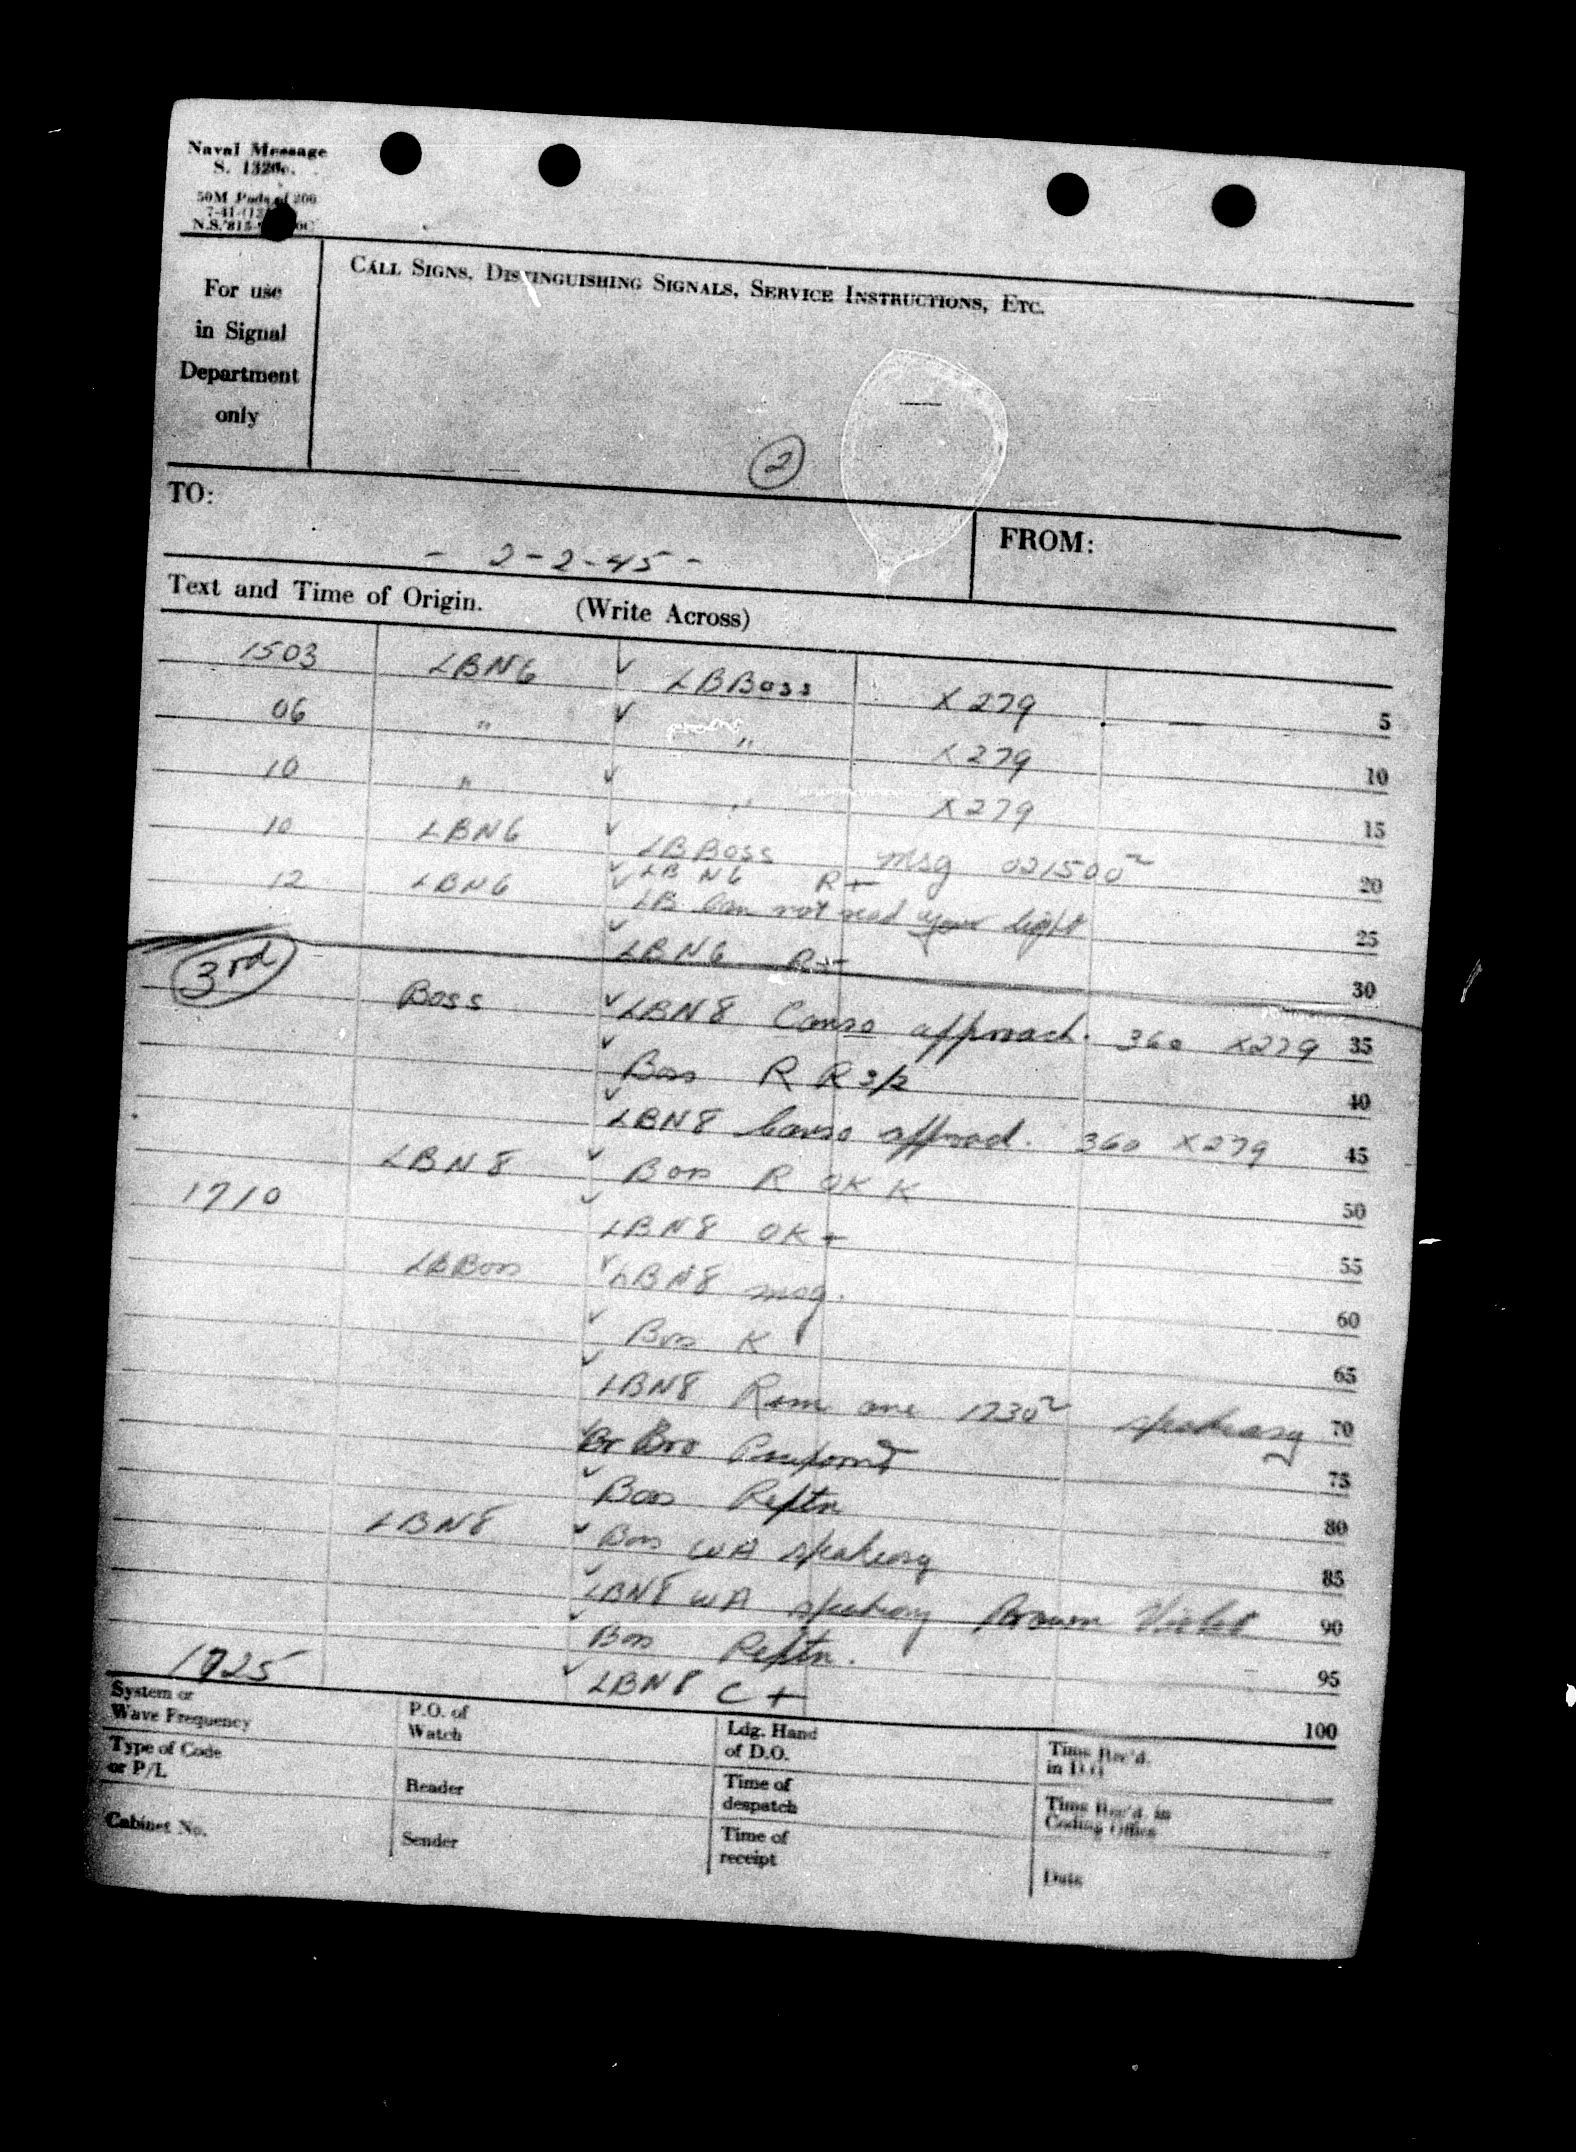 Naval Message
S. 1320c.
50M Pads of 200
7-41 (12
N.S. 815-
For use
in Signal
Department
only
CALL SIGNS, DISTINGUISHING SIGNALS, SERVICE INSTRUCTIONS, ETC.
2
TO:
FROM:
- 2-2-45 -
Text and Time of Origin. (Write Across)
1503 LBN6 V LBBoss X279
5
06 " V " X279
10
10 " V " X279
15
10 LBN6 V LBBoss Msg 021500Z
20
V LBN6 R+
12 LBN6 V LB Can not read your light
25
V LBN6 R+
30
3rd
Boss V LBN8 Canso approach. 360 X279 35
V Boss R R 3/2
40
V LBN8 Canso approach. 360 X279
45
LBN8 V Boss R OK K
50
1710 V LBN8 OK+
55
LBBoss V LBN8 msg.
60
V Boss K
65
V LBN8 1730Z
70
75
V Boss Reptn
80
LBN8 V Boss WA
85
V LBN8 WA Brown Violet
90
V Boss Reptn.
95
1725 V LBN8 C+
100
System or
Wave Frequency
P.O. of
Watch
Ldg. Hand
of D.O.
Time Rec'd.
in D.O.
Type of Code
or P/L
Reader
Time of
despatch
Time Rec'd in
Coding Office
Cabinet No.
Sender
Time of
receipt
Date